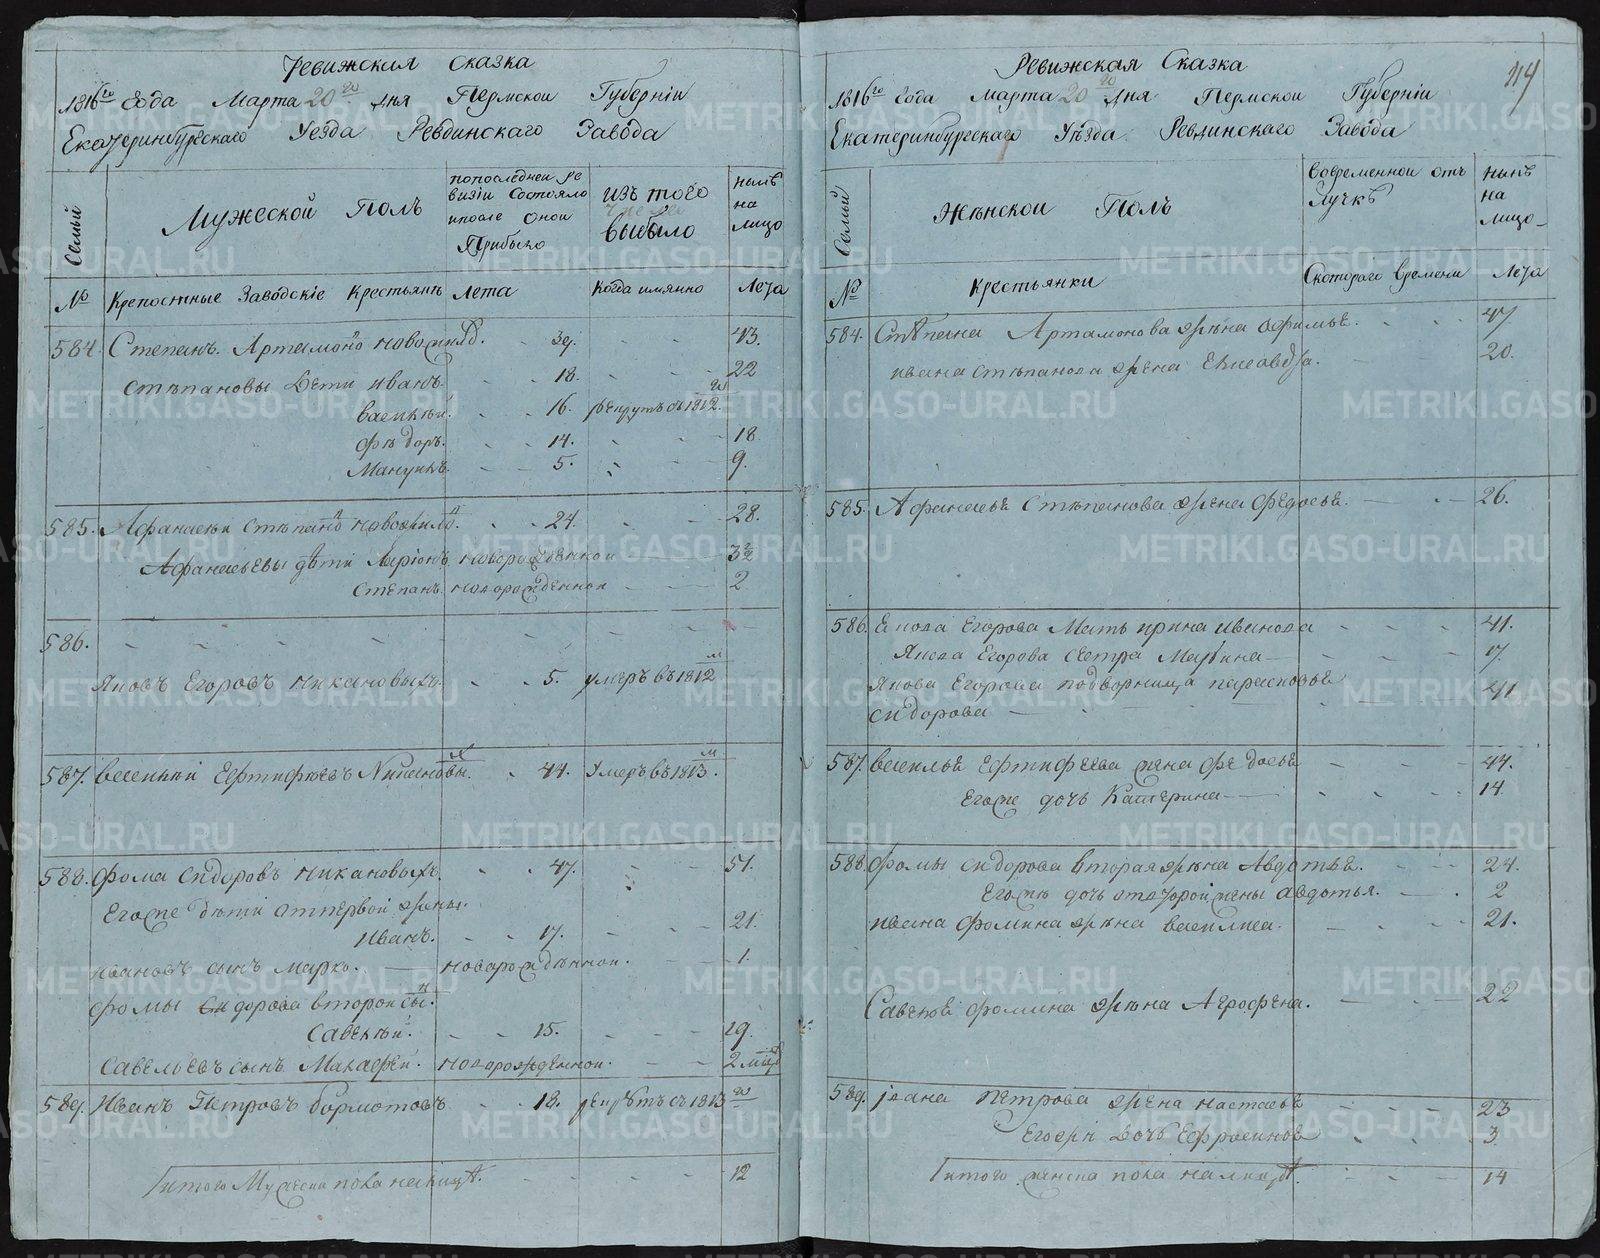 Ревижская Сказка
1816го Года Марта 20го дня Пермской Губернiи
Екатеринбургскаго Уезда Ревдинскаго Завода
Семьи
Мужеской Полъ
попоследнеи ре
визiи Состояло
ипосле Онои
Прибыло
изъ того
числа
выбыло
ныне
на
лицо
№
Крепостные Заводскiе Крестьяне
Лета
Когда имянно
Лета
584. Степанъ Артамоно - - 39. - - 43.
Степановы Дети иванъ - - 18. - - 22
Василеи. - - 16. рекрутъ съ 1812го
федоръ. - - 14. - - 18.
- - 5. - - 9.
585. Афанасеи Степано - - 24. - - 28.
Афанасьевы дети новорожденнои 3 1/2
степанъ новорожденнои - - 2
586.
Яковъ Егоровъ никановыхъ. - - 5. умеръ въ 1812м
587. Василеи - - 44. Умеръ въ 1813м.
588. фома сидоровъ никановыхъ. - - 47. - - 51.
Егоже дети отпервой жены.
иванъ. - - 17. - - 21.
ивановъ сынъ марко. - новорожденнои. - - 1.
фомы сидорова второй сынъ.
Савелеи. - - 15. - - 19.
Савельевъ сынъ новорожденнои. - - 2 мца
589. Иванъ Петровъ бормотовъ - - 18. рекрутъ съ 1813го
Итого Мужеска пола налицо. - - 12
Ревижская Сказка
114
1816го Года марта 20го дня Пермской Губернiи
Екатеринбургскаго Уѣзда Ревдинскаго Завода
Семьи
Женскои Полъ
Вовременнои отъ
лучкѣ
ныне
на
лицо
№
Крестьянки
Скотораго времени
Лета
584. Степана Артамонова жена Офимья. - - 47
ивана степанова жена Елисавета. - - 20.
585. Афанасья Степанова жена федосья. - - 26.
586. Якова Егорова Мать ирина иванова - - 41.
Якова Егорова сестра Марина - - 17.
Якова Егорова подворница парасковья - - 41
сидорова
587. василья жена федосья - - 44.
Егоже дочь Катерина - - 14
588. фомы сидорова вторая жена Авдотья. - - 24.
Егоже дочь отвторой жены авдотья. - - 2
ивана фомина жена василиса. - - 21.
Савелья фомина жена Агрофена. - - 22
589. Iвана Петрова жена настасья - - 23
Дочь Ефросинья - - 3
Итого женска пола налицо. - - 14
METRIKI.GASO-URAL.RU